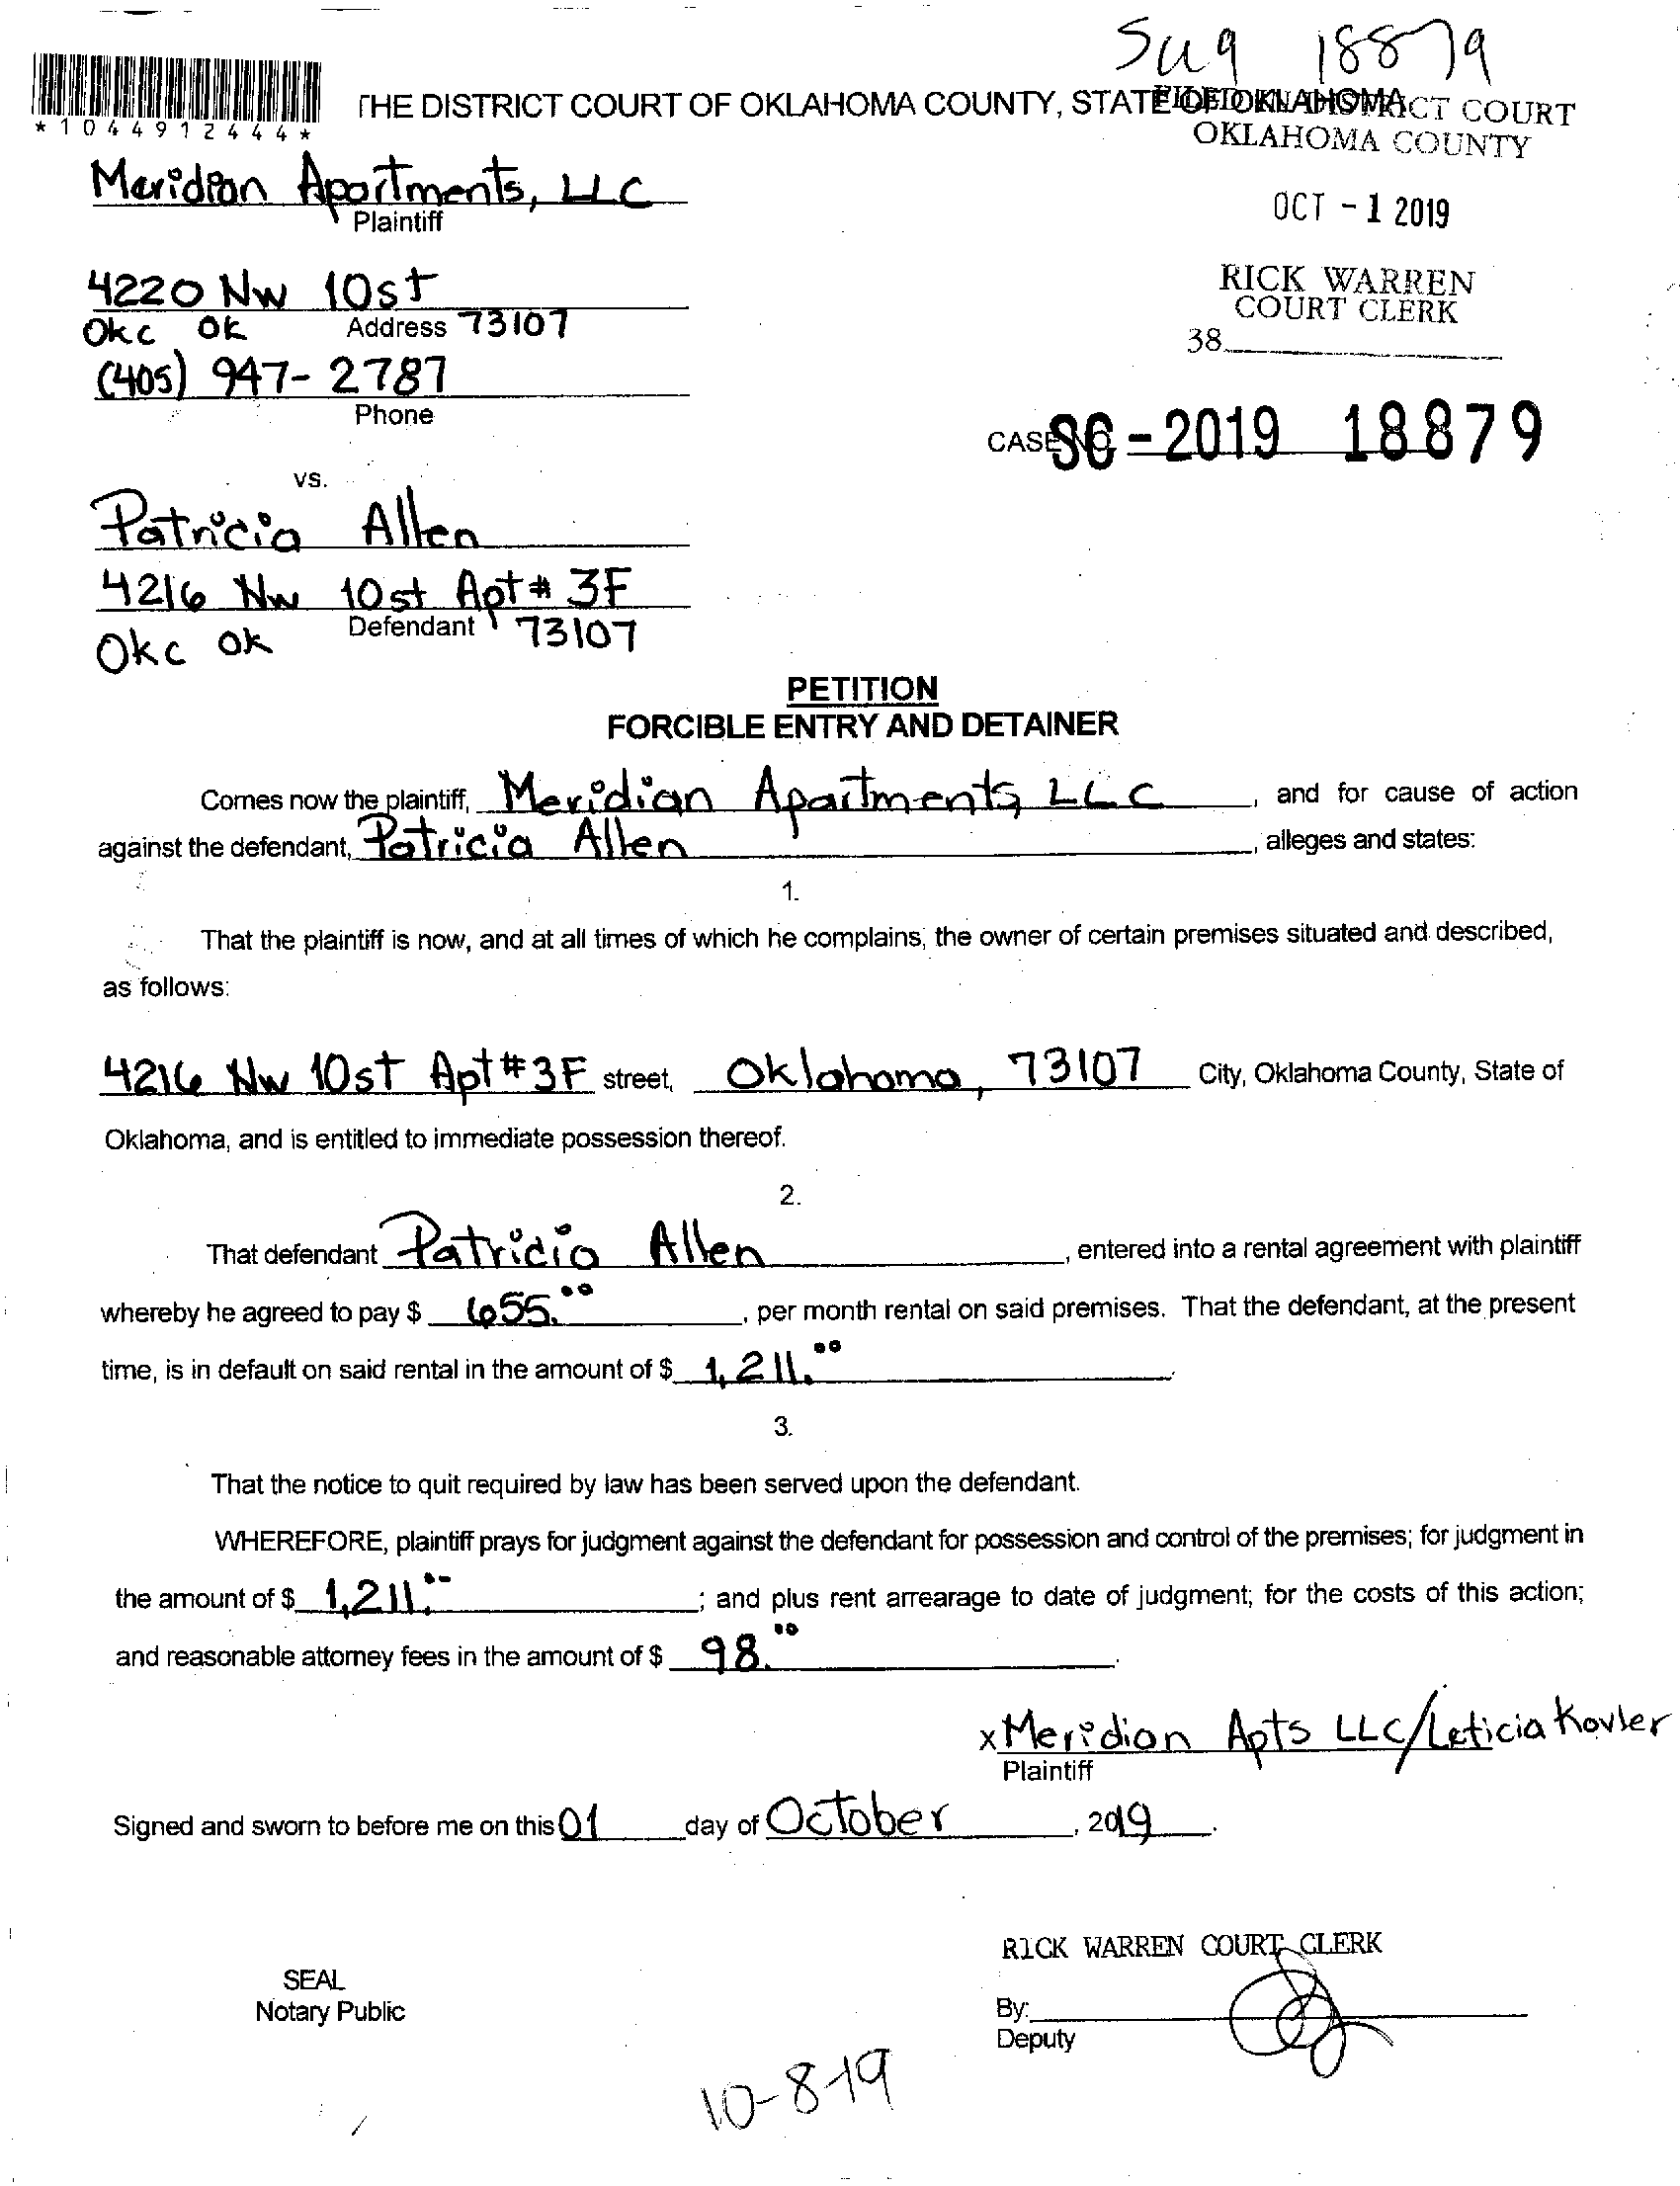 Sug 18879
THE DISTRICT COURT OF OKLAHOMA COUNTY, STATE OF OKLAHOMA
FILED IN DISTRICT COURT
OKLAHOMA COUNTY
*1044912444*
Meridian Apartments, LLC
Plaintiff
OCT - 1 2019
4220 NW 10st
RICK WARREN
COURT CLERK
Okc Ok Address 73107
38
(405) 947-2787
Phone
CASE NO. SC - 2019 18879
vs.
Patricia Allen
4216 NW 10st Apt# 3F
Defendant 73107
Okc Ok
PETITION
FORCIBLE ENTRY AND DETAINER
Comes now the plaintiff, Meridian Apartments LLC, and for cause of action
against the defendant, Patricia Allen, alleges and states:
1.
That the plaintiff is now, and at all times of which he complains, the owner of certain premises situated and described,
as follows:
4216 NW 10st Apt #3F street, Oklahoma, 73107 City, Oklahoma County, State of
Oklahoma, and is entitled to immediate possession thereof.
2.
That defendant Patricia Allen, entered into a rental agreement with plaintiff
whereby he agreed to pay $ 655.00, per month rental on said premises. That the defendant, at the present
time, is in default on said rental in the amount of $ 1,211.00.
3.
That the notice to quit required by law has been served upon the defendant.
WHEREFORE, plaintiff prays for judgment against the defendant for possession and control of the premises; for judgment in
the amount of $ 1,211.--; and plus rent arrearage to date of judgment; for the costs of this action;
and reasonable attorney fees in the amount of $ 98.00.
x Meridian Apts LLC/Leticia Kovler
Plaintiff
Signed and sworn to before me on this 01 day of October, 2019.
RICK WARREN COURT CLERK
SEAL
Notary Public
By:
Deputy
10-8-19